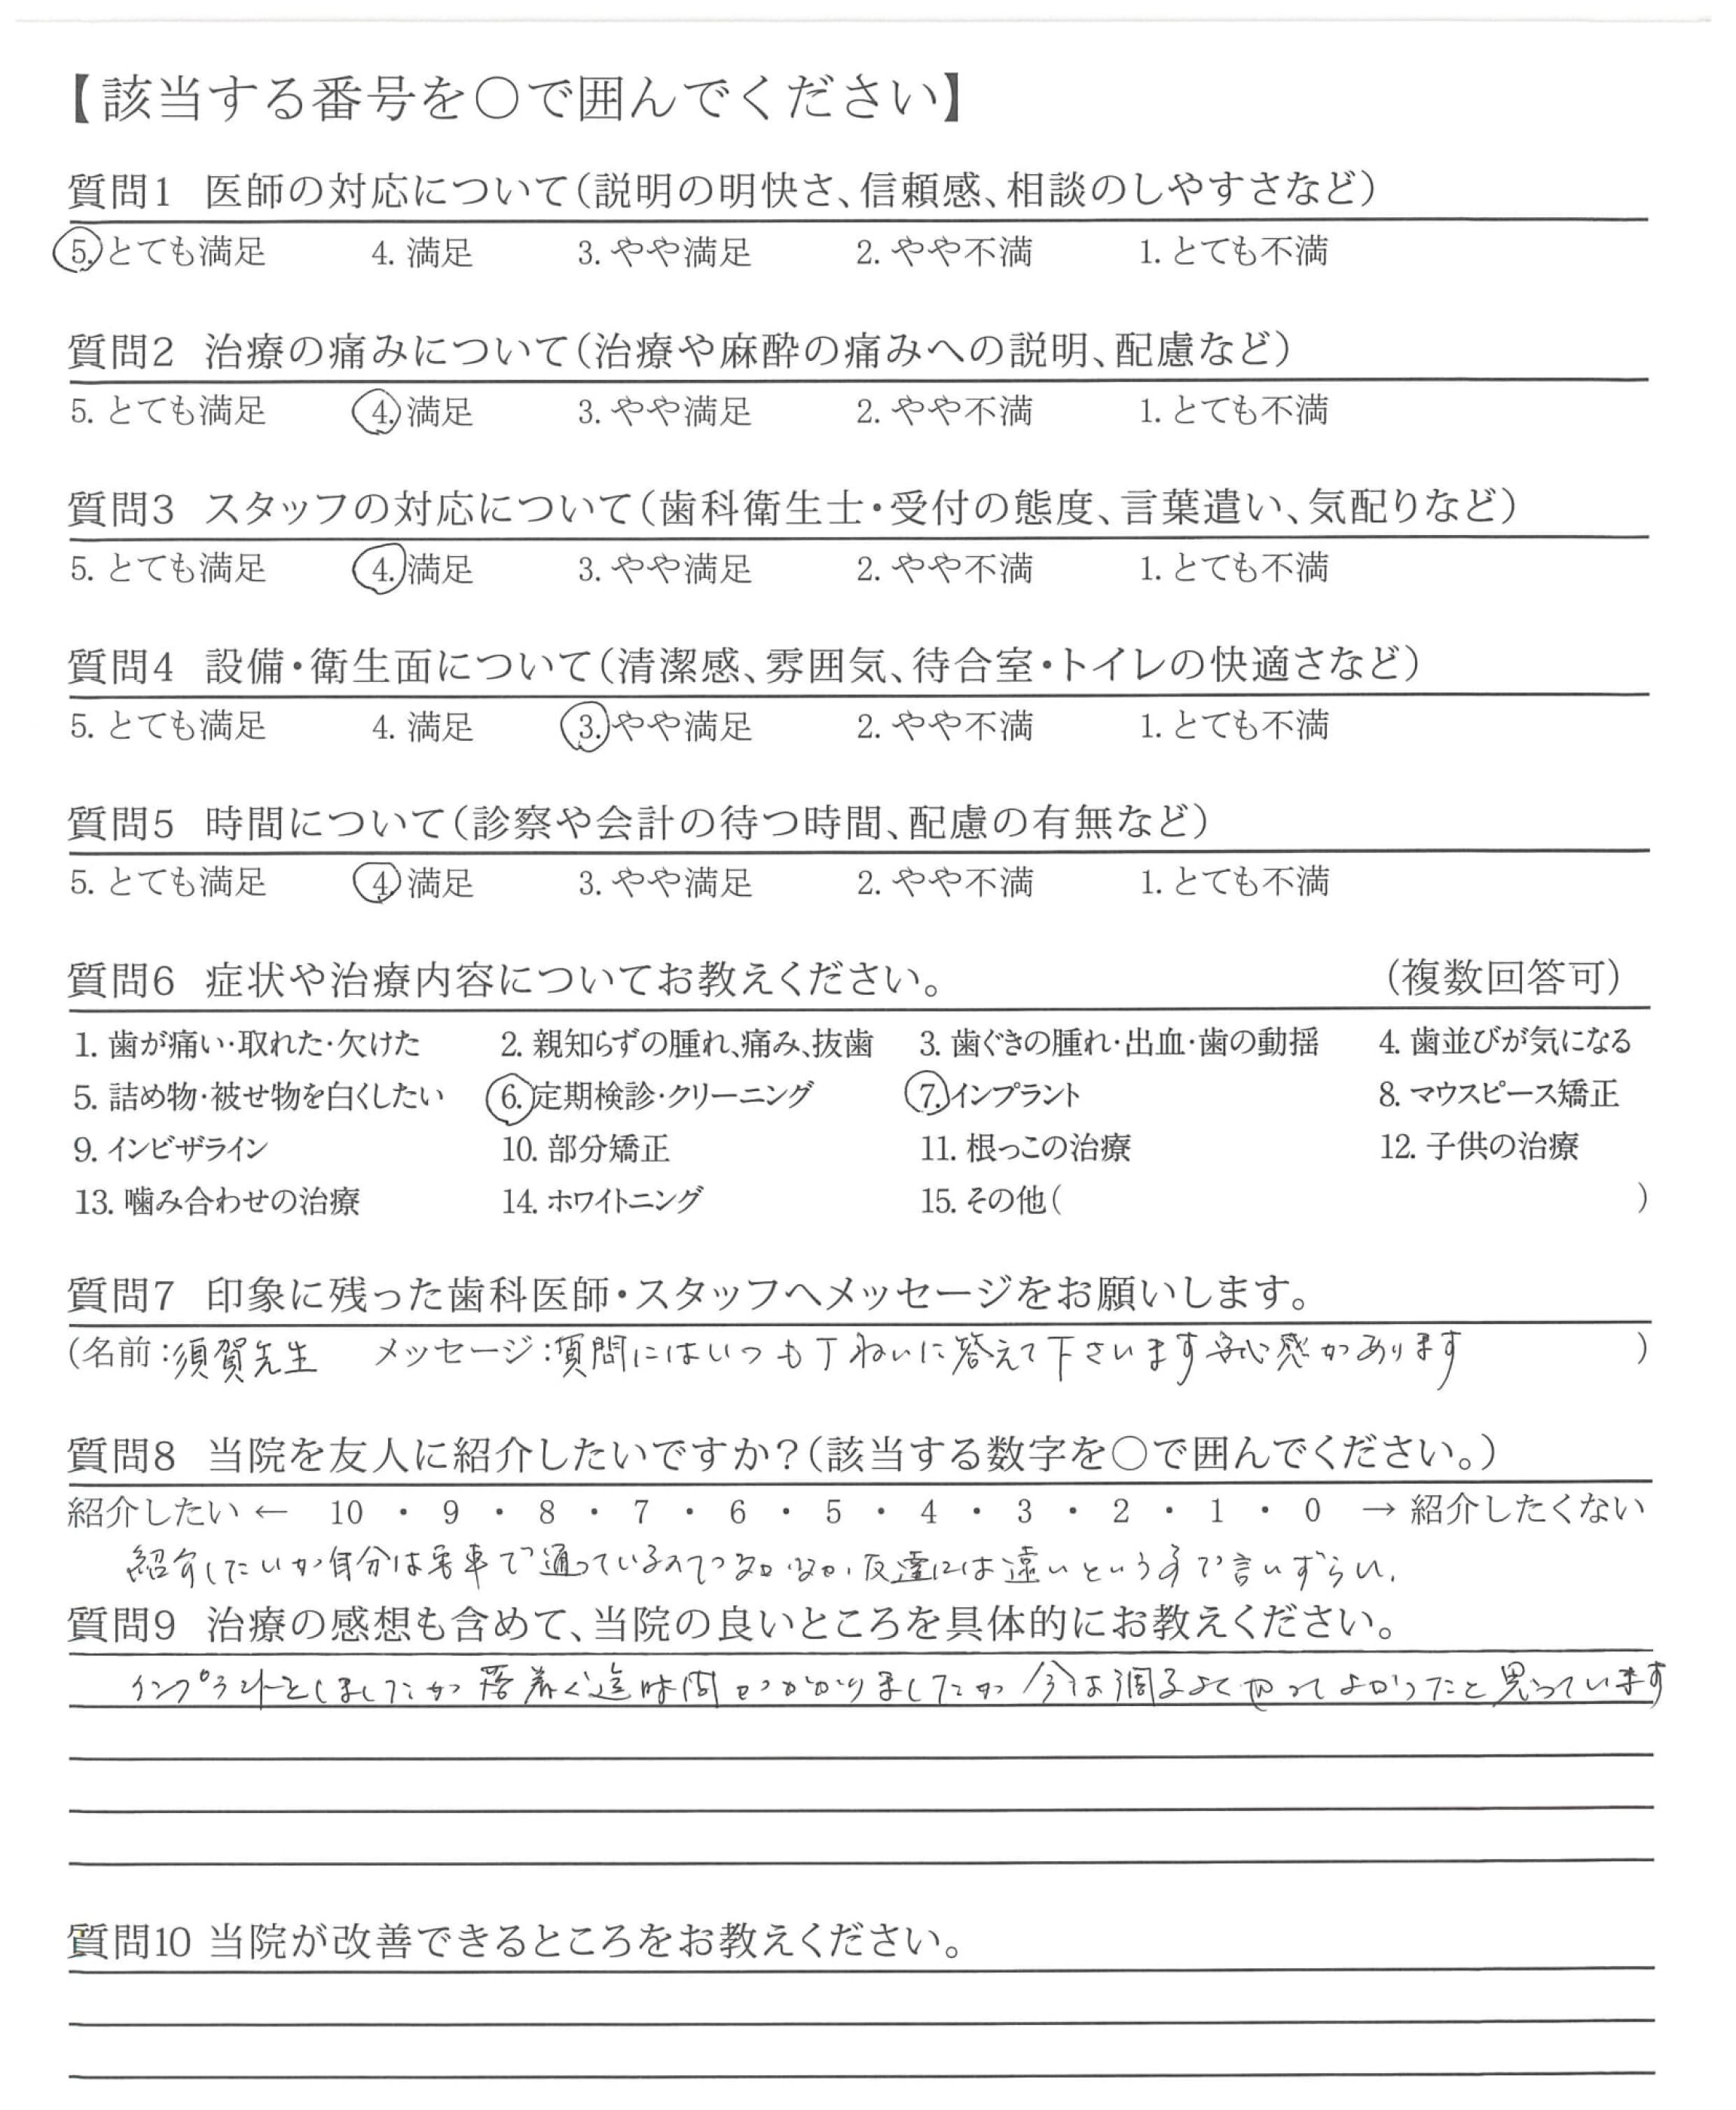 【該当する番号を○で囲んでください】
質問1 医師の対応について(説明の明快さ、信頼感、相談のしやすさなど)
5. とても満足 4. 満足 3. やや満足 2. やや不満 1. とても不満
質問2 治療の痛みについて(治療や麻酔の痛みへの説明、配慮など)
5. とても満足 4. 満足 3. やや満足 2. やや不満 1. とても不満
質問3 スタッフの対応について(歯科衛生士・受付の態度、言葉遣い、気配りなど)
5. とても満足 4. 満足 3. やや満足 2. やや不満 1. とても不満
質問4 設備・衛生面について(清潔感、雰囲気、待合室・トイレの快適さなど)
5. とても満足 4. 満足 3. やや満足 2. やや不満 1. とても不満
質問5 時間について(診察や会計の待つ時間、配慮の有無など)
5. とても満足 4. 満足 3. やや満足 2. やや不満 1. とても不満
質問6 症状や治療内容についてお教えください。 (複数回答可)
1. 歯が痛い・取れた・欠けた 2. 親知らずの腫れ、痛み、抜歯 3. 歯ぐきの腫れ・出血・歯の動揺 4. 歯並びが気になる
5. 詰め物・被せ物を白くしたい 6. 定期検診・クリーニング 7. インプラント 8. マウスピース矯正
9. インビザライン 10. 部分矯正 11. 根っこの治療 12. 子供の治療
13. 噛み合わせの治療 14. ホワイトニング 15. その他( )
質問7 印象に残った歯科医師・スタッフへメッセージをお願いします。
(名前:須賀先生 メッセージ:質問にはいつも丁ねいに答えて下さいます安心感があります )
質問8 当院を友人に紹介したいですか?(該当する数字を○で囲んでください。)
紹介したい ← 10 ・ 9 ・ 8 ・ 7 ・ 6 ・ 5 ・ 4 ・ 3 ・ 2 ・ 1 ・ 0 → 紹介したくない
紹介したいが自分は電車で通っているので 友達には遠いという事で言いずらい.
質問9 治療の感想も含めて、当院の良いところを具体的にお教えください。
インプラントをしましたが落着く迄時間がかかりましたが今は調子よくやってよかったと思っています
質問10 当院が改善できるところをお教えください。